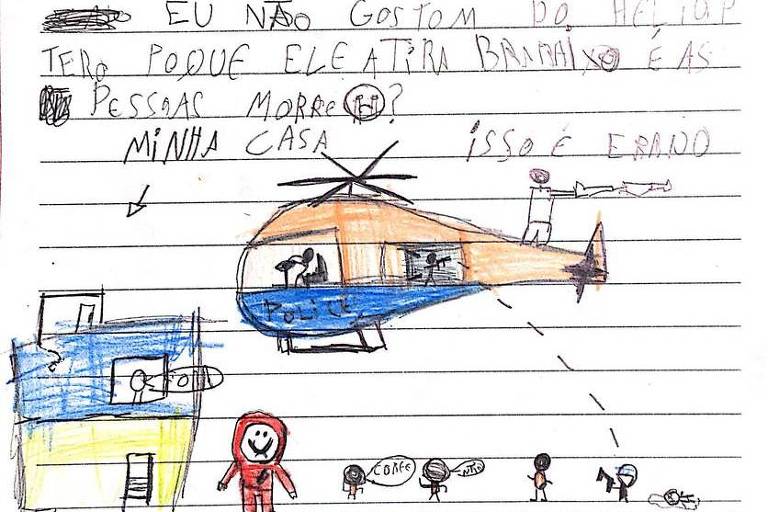 EU NÃO GOSTOM DO HELIUP
TERO POQUE ELE ATIRA BAMAIXO É AS
PESSOAS MORRE?
MINHA CASA
ISSO É ERADO
POLICE
CORRE
NÃO